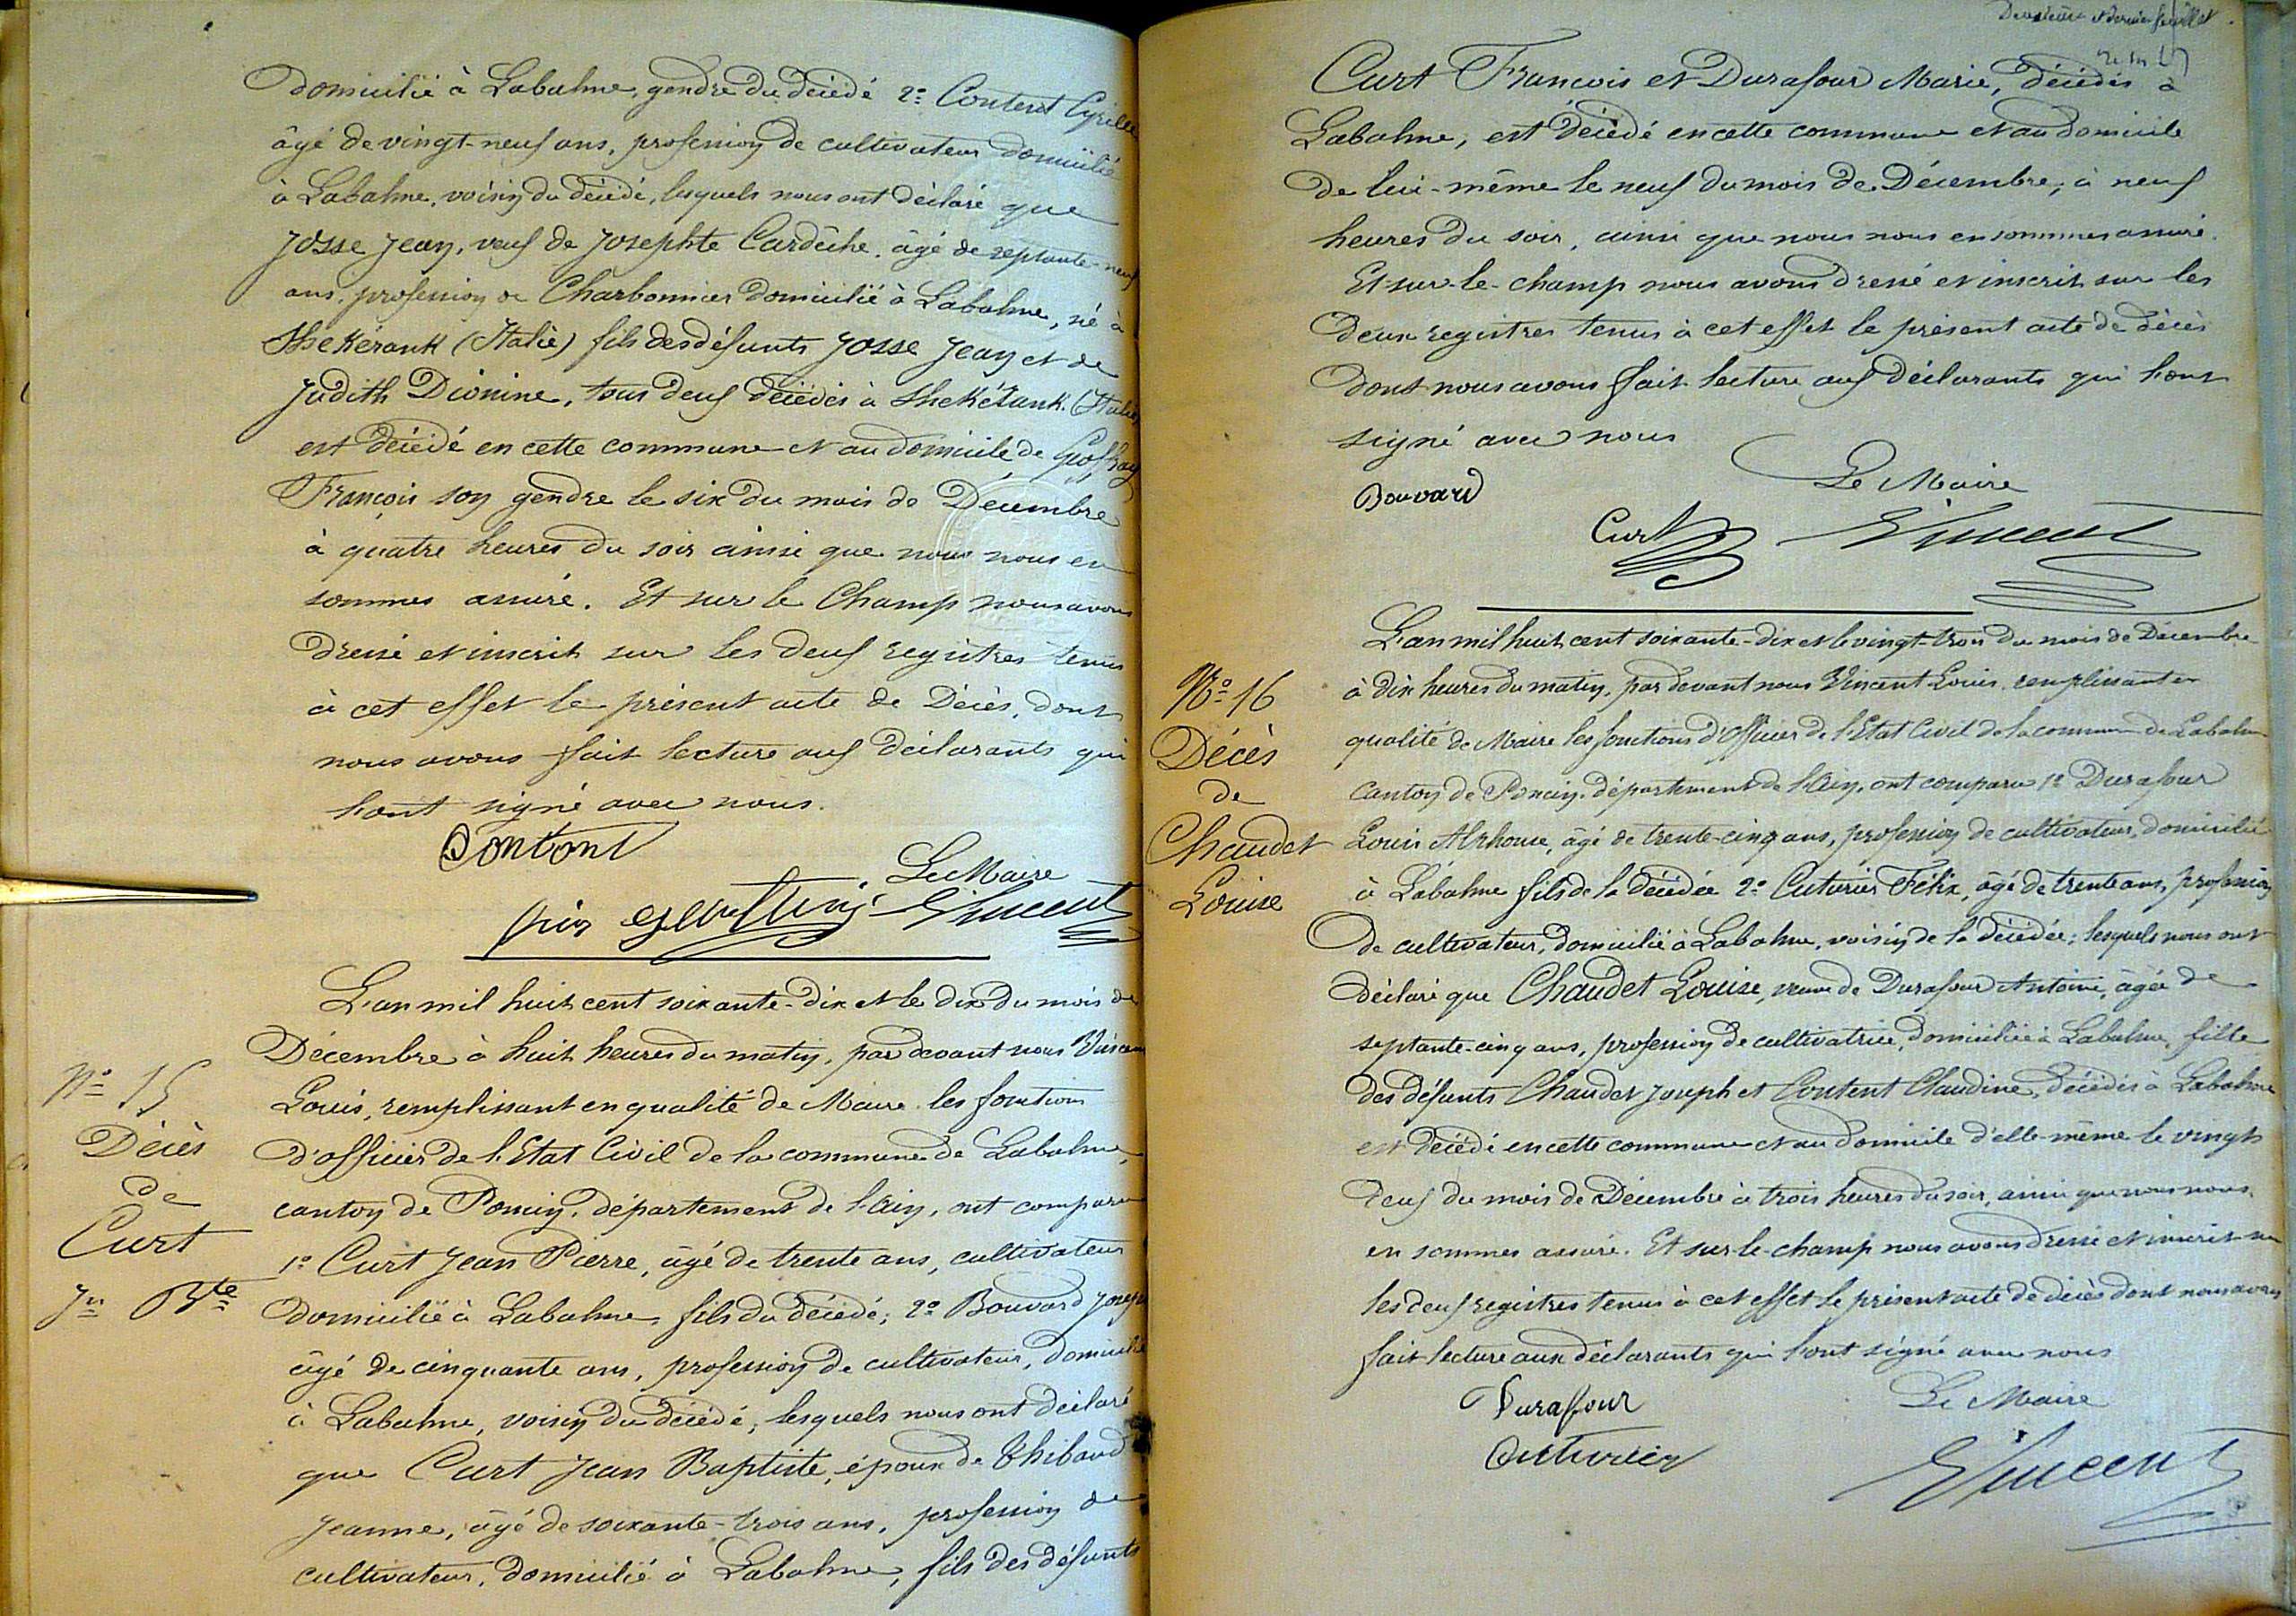 domicilié à Labalme, gendre du décédé 2º Content Cyrille
âgé de vingt-neuf ans, profession de cultivateur domicilié
à Labalme, voisin du décédé, lesquels nous ont déclaré que
Josse Jean, veuf de Josephte Cardêche, âgé de septante-neuf
ans, profession de Charbonnier domicilié à Labalme, né à
(Italie) fils des défunts Josse Jean et de
Judith Dionine, tous deux décédés à (Italie)
est décédé en cette commune et au domicile de
François son gendre le six du mois de Décembre
à quatre heures du soir ainsi que nous nous en
sommes assuré. Et sur le Champ nous avons
dressé et inscrit sur les deux registres tenus
à cet effet le présent acte de Décès, dont
nous avons fait lecture aux déclarants qui
l'ont signé avec nous.
Le Maire
Vincent
L'an mil huit cent soixante-dix et le dix du mois de
Décembre à huit heures du matin, par devant nous Vincent
Louis, remplissant en qualité de Maire les fonctions
d'officier de l'Etat Civil de la commune de Labalme,
canton de Poncin, département de l'Ain, ont comparu
1º Curt Jean Pierre, âgé de trente ans, cultivateur
domicilié à Labalme, fils du décédé; 2º Bouvard Joseph
âgé de cinquante ans, profession de cultivateur, domicilié
à Labalme, voisin du décédé, lesquels nous ont déclaré
que Curt Jean Baptiste, époux de Thibaud
Jeanne, âgé de soixante-trois ans, profession de
cultivateur, domicilié à Labalme, fils des défunts
Nº 15
Décès
de
Curt
Jn Bte
Deuxième et dernier feuillet
Curt François et Durafour Marie, décédés à
Labalme, est décédé en cette commune et au domicile
de lui-même le neuf du mois de Décembre, à neuf
heures du soir, ainsi que nous nous en sommes assuré.
Et sur-le-champ nous avons dressé et inscrit sur les
deux registres tenus à cet effet le présent acte de décès
dont nous avons fait lecture aux déclarants qui l'ont
signé avec nous
Le Maire
Bouvard
Curt Vincent
Nº 16
Décès
de
Chaudet
Louise
L'an mil huit cent soixante-dix et le vingt-trois du mois de Décembre
à dix heures du matin, par devant nous Vincent Louis, remplissant en
qualité de Maire les fonctions d'Officier de l'Etat Civil de la commune de Labalme
canton de Poncin, département de l'Ain, ont comparu 1º Durafour
Louis Alphonse, âgé de trente-cinq ans, profession de cultivateur, domicilié
à Labalme fils de la décédée 2º Cuturier Félix, âgé de trente ans, profession
de cultivateur, domicilié à Labalme, voisin de la décédée; lesquels nous ont
déclaré que Chaudet Louise, veuve de Durafour Antoine, âgée de
septante-cinq ans, profession de cultivatrice, domiciliée à Labalme, fille
des défunts Chaudet Joseph et Content Claudine, décédés à Labalme
est décédé en cette commune et au domicile d'elle-même le vingt
deux du mois de Décembre à trois heures du soir, ainsi que nous nous
en sommes assuré. Et sur-le-champ nous avons dressé et inscrit sur
les deux registres tenus à cet effet le présent acte de décès dont nous avons
fait lecture aux déclarants qui l'ont signé avec nous
Durafour Le Maire
Cuturier Vincent